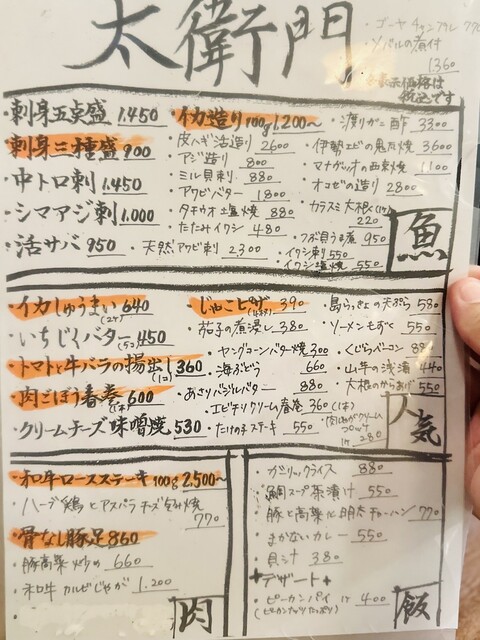 太衛門
・ゴーヤ
・ソバルの煮付
1360
※表示価格は
税込です
・刺身五点盛 1.450
・刺身三種盛 900
・中トロ刺 1.450
・シマアジ刺 1.000
・活サバ 950
・イカ造り 100g 1.200~
・皮ハギ活造り 2600
・アジ造り 800
・ミル貝刺 880
・アワビバター 1800
・タチウオ塩焼 880
・たたみイワシ 480
・天然アワビ刺 2.300
・渡りガニ酢 3300
・伊勢エビの鬼瓦焼 3600
・マナガツオの西京焼 1100
・オコゼの造り 2800
・カラスミ大根
220
・つぶ貝うま煮 950
・イワシ刺 550
・イワシ塩焼 550
魚
・イカしゅうまい 640
(2ケ)
・いちじくバター 450
(5コ)
・トマトと牛バラの揚出し 360
(1コ)
・肉ごぼう春巻 600
(2本)
・クリームチーズ味噌焼 530
・じゃこピザ 390
(4枚)
・茄子の煮浸し 380
・ヤングコーンバター焼 300
・海ぶどう 660
・あさりバジルバター 880
・エビチリクリーム春巻 360 (1本)
・たけの子ステーキ 550
・島らっきょの天ぷら 580
・ソーメンもずく 550
・くじらベーコン
・山芋の浅漬 440
・大根のからあげ 550
・肉じゃがクリーム
コロッケ
1ケ 280
人気
・和牛ロースステーキ 100g 2,500~
・ハーブ鶏とアスパラチーズ包み焼
770
・骨なし豚足 860
・豚高菜炒め 660
・和牛カルビじゃが 1.200
肉
・ガーリックライス 880
・鯛スープ茶漬け 550
・豚と高菜と明太チャーハン 770
・まかないカレー 550
・貝汁 380
+デザート+
・ピーカンパイ 1ケ 400
(ピーカンナッツたっぷり)
飯